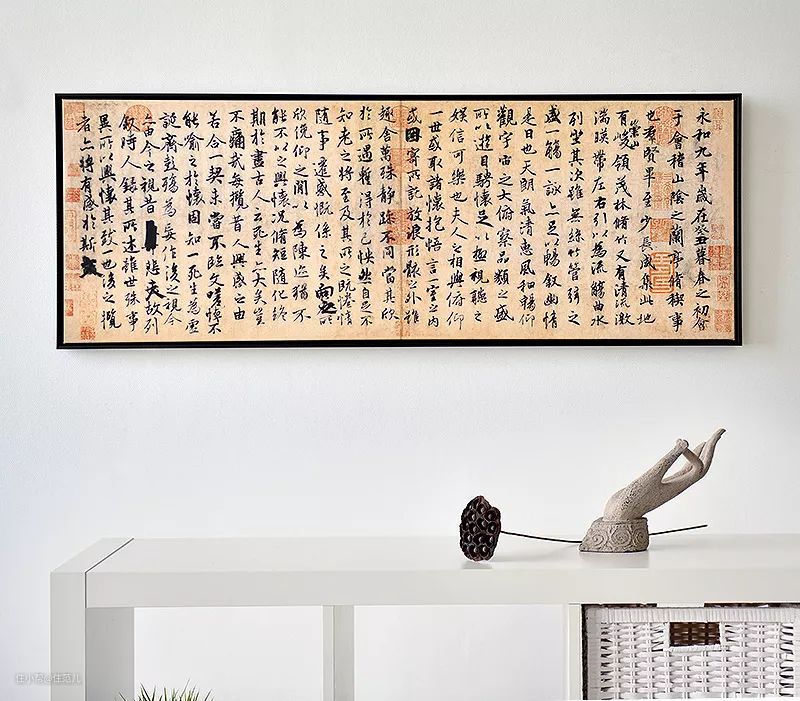 永和九年歲在癸丑暮春之初會
于會稽山陰之蘭亭脩稧事
也羣賢畢至少長咸集此地
有崇山峻領茂林脩竹又有清流激
湍暎帶左右引以為流觴曲水
列坐其次雖無絲竹管弦之
盛一觴一詠亦足以暢敘幽情
是日也天朗氣清惠風和暢仰
觀宇宙之大俯察品類之盛
所以遊目騁懷足以極視聽之
娛信可樂也夫人之相與俯仰
一世或取諸懷抱悟言一室之內
或因寄所託放浪形骸之外雖
趣舍萬殊靜躁不同當其欣
於所遇蹔得於己怏然自足不
知老之將至及其所之既惓情
隨事遷感慨係之矣向之所
欣俛仰之閒以為陳迹猶不
能不以之興懷況脩短隨化終
期於盡古人云死生亦大矣豈
不痛哉每攬昔人興感之由
若合一契未嘗不臨文嗟悼不
能喻之於懷固知一死生為虛
誕齊彭殤為妄作後之視今
亦由今之視昔悲夫故列
敘時人錄其所述雖世殊事
異所以興懷其致一也後之攬
者亦將有感於斯文
住小帮@住范儿